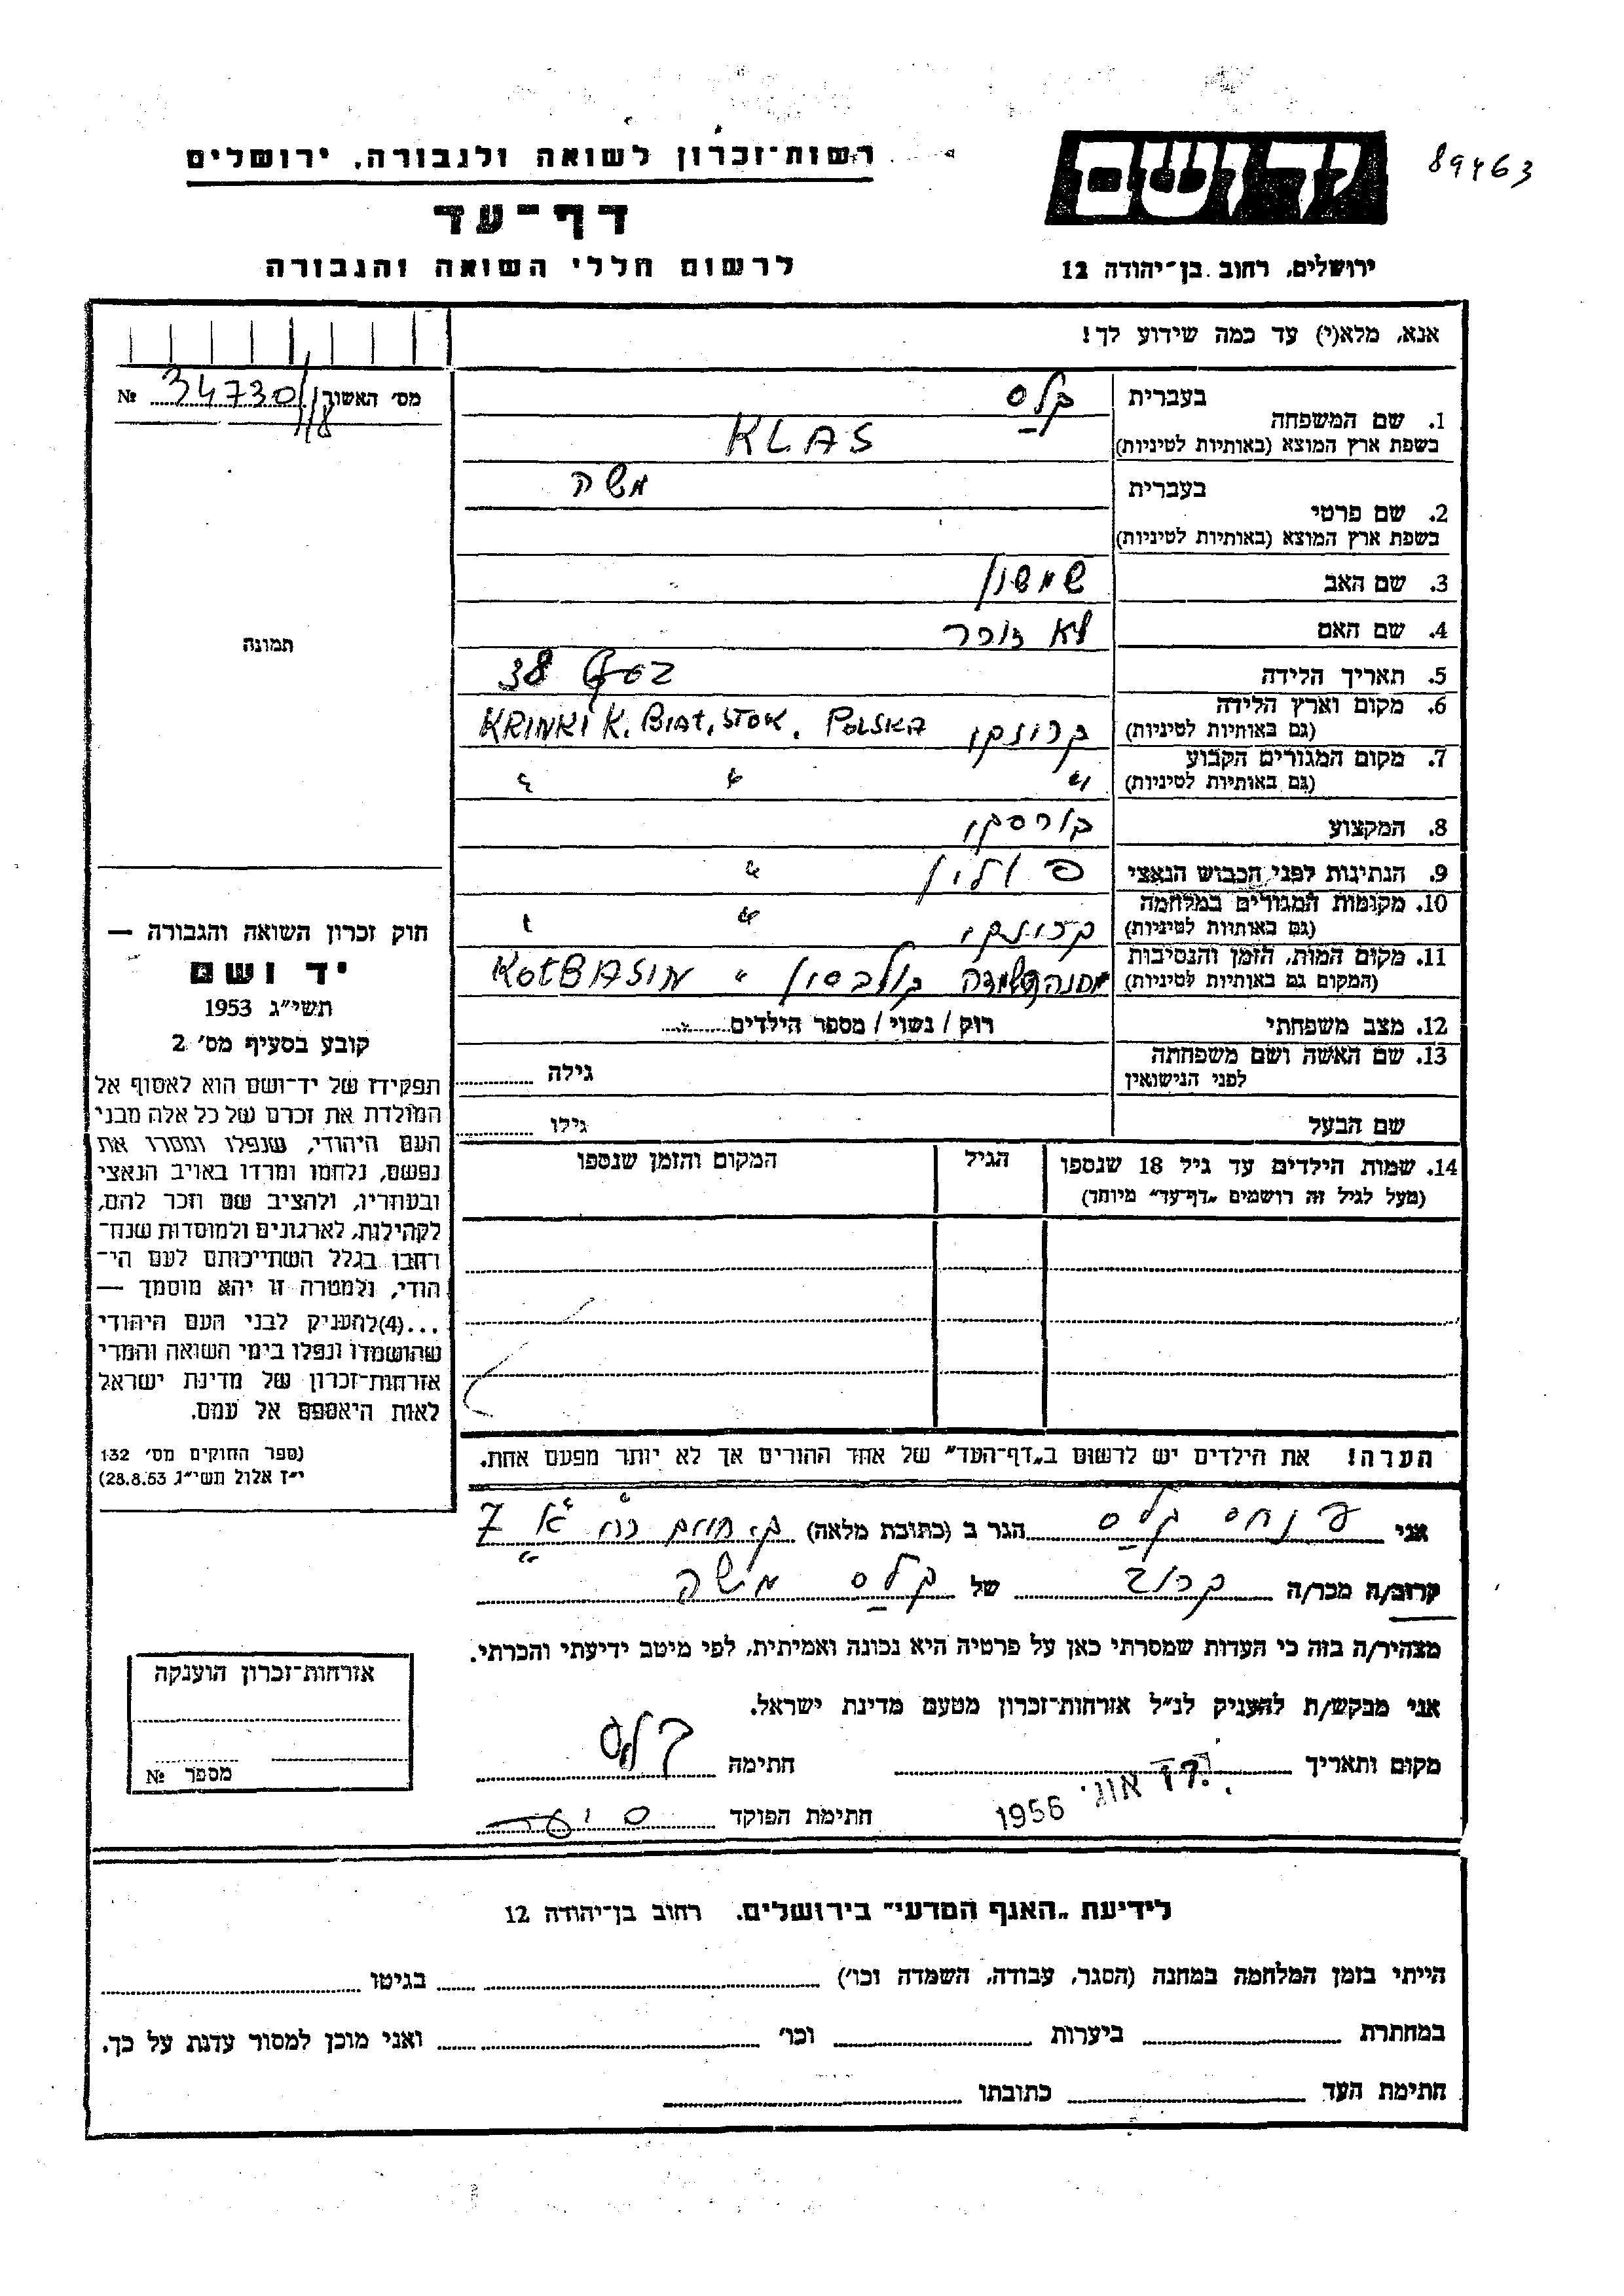 89463
רשות-זכרון לשואה ולגבורה, ירושלים
יד ושם
דף-עד
לרשום חללי השואה והגבורה
ירושלים, רחוב בן-יהודה 12
אנא, מלא(י) עד כמה שידוע לך!
מס' האשור 34730/118 №
1. שם המשפחה
בעברית קלס
בשפת ארץ המוצא (באותיות לטיניות) KLAS
2. שם פרטי
בעברית משה
בשפת ארץ המוצא (באותיות לטיניות)
3. שם האב שמשון
4. שם האם לא זוכר
5. תאריך הלידה 38
6. מקום וארץ הלידה
(גם באותיות לטיניות) קרונקי KRINKI K. BIAŁ,STOK. POLSKA
7. מקום המגורים הקבוע
(גם באותיות לטיניות) " " "
8. המקצוע בורסקי
9. הנתינות לפני הכבוש הנאצי פולין "
10. מקומות המגורים במלחמה
(גם באותיות לטיניות) קרונקי " "
11. מקום המות, הזמן והנסיבות
(המקום גם באותיות לטיניות) מחנה השמדה קולבסין " KOŁBASIN
12. מצב משפחתי רוק / נשוי / מספר הילדים
13. שם האשה ושם משפחתה
לפני הנישואין גילה
שם הבעל גילו
14. שמות הילדים עד גיל 18 שנספו הגיל המקום והזמן שנספו
(מעל לגיל זה רושמים "דף-עד" מיוחד)
תמונה
חוק זכרון השואה והגבורה —
יד ושם
תשי"ג 1953
קובע בסעיף מס' 2
תפקידו של יד-ושם הוא לאסוף אל
המולדת את זכרם של כל אלה מבני
העם היהודי, שנפלו ומסרו את
נפשם, נלחמו ומרדו באויב הנאצי
ובעוזריו, ולהציב שם וזכר להם,
לקהילות, לארגונים ולמוסדות שנח-
רבו בגלל השתייכותם לעם הי-
הודי, ולמטרה זו יהא מוסמך —
...(4)להעניק לבני העם היהודי
שהושמדו ונפלו בימי השואה והמרי
אזרחות-זכרון של מדינת ישראל
לאות היאספם אל עמם.
(ספר החוקים מס' 132
י"ז אלול תשי"ג 28.8.53)
הערה! את הילדים יש לרשום ב"דף-העד" של אחד ההורים אך לא יותר מפעם אחת.
אני פנחס קלס הגר ב (כתובת מלאה) ק. חיים 7
קרוב/ה מכר/ה קרוב של קלס משה
מצהיר/ה בזה כי העדות שמסרתי כאן על פרטיה היא נכונה ואמיתית, לפי מיטב ידיעתי והכרתי.
אני מבקש/ת להעניק לנ"ל אזרחות-זכרון מטעם מדינת ישראל.
מקום ותאריך אוג' 1956 חתימה קלס
חתימת הפוקד
אזרחות-זכרון הוענקה
מספר №
לידיעת "האגף המדעי" בירושלים. רחוב בן-יהודה 12
הייתי בזמן המלחמה במחנה (הסגר, עבודה, השמדה וכו') בגיטו
במחתרת ביערות וכו' ואני מוכן למסור עדות על כך.
חתימת העד כתובתו